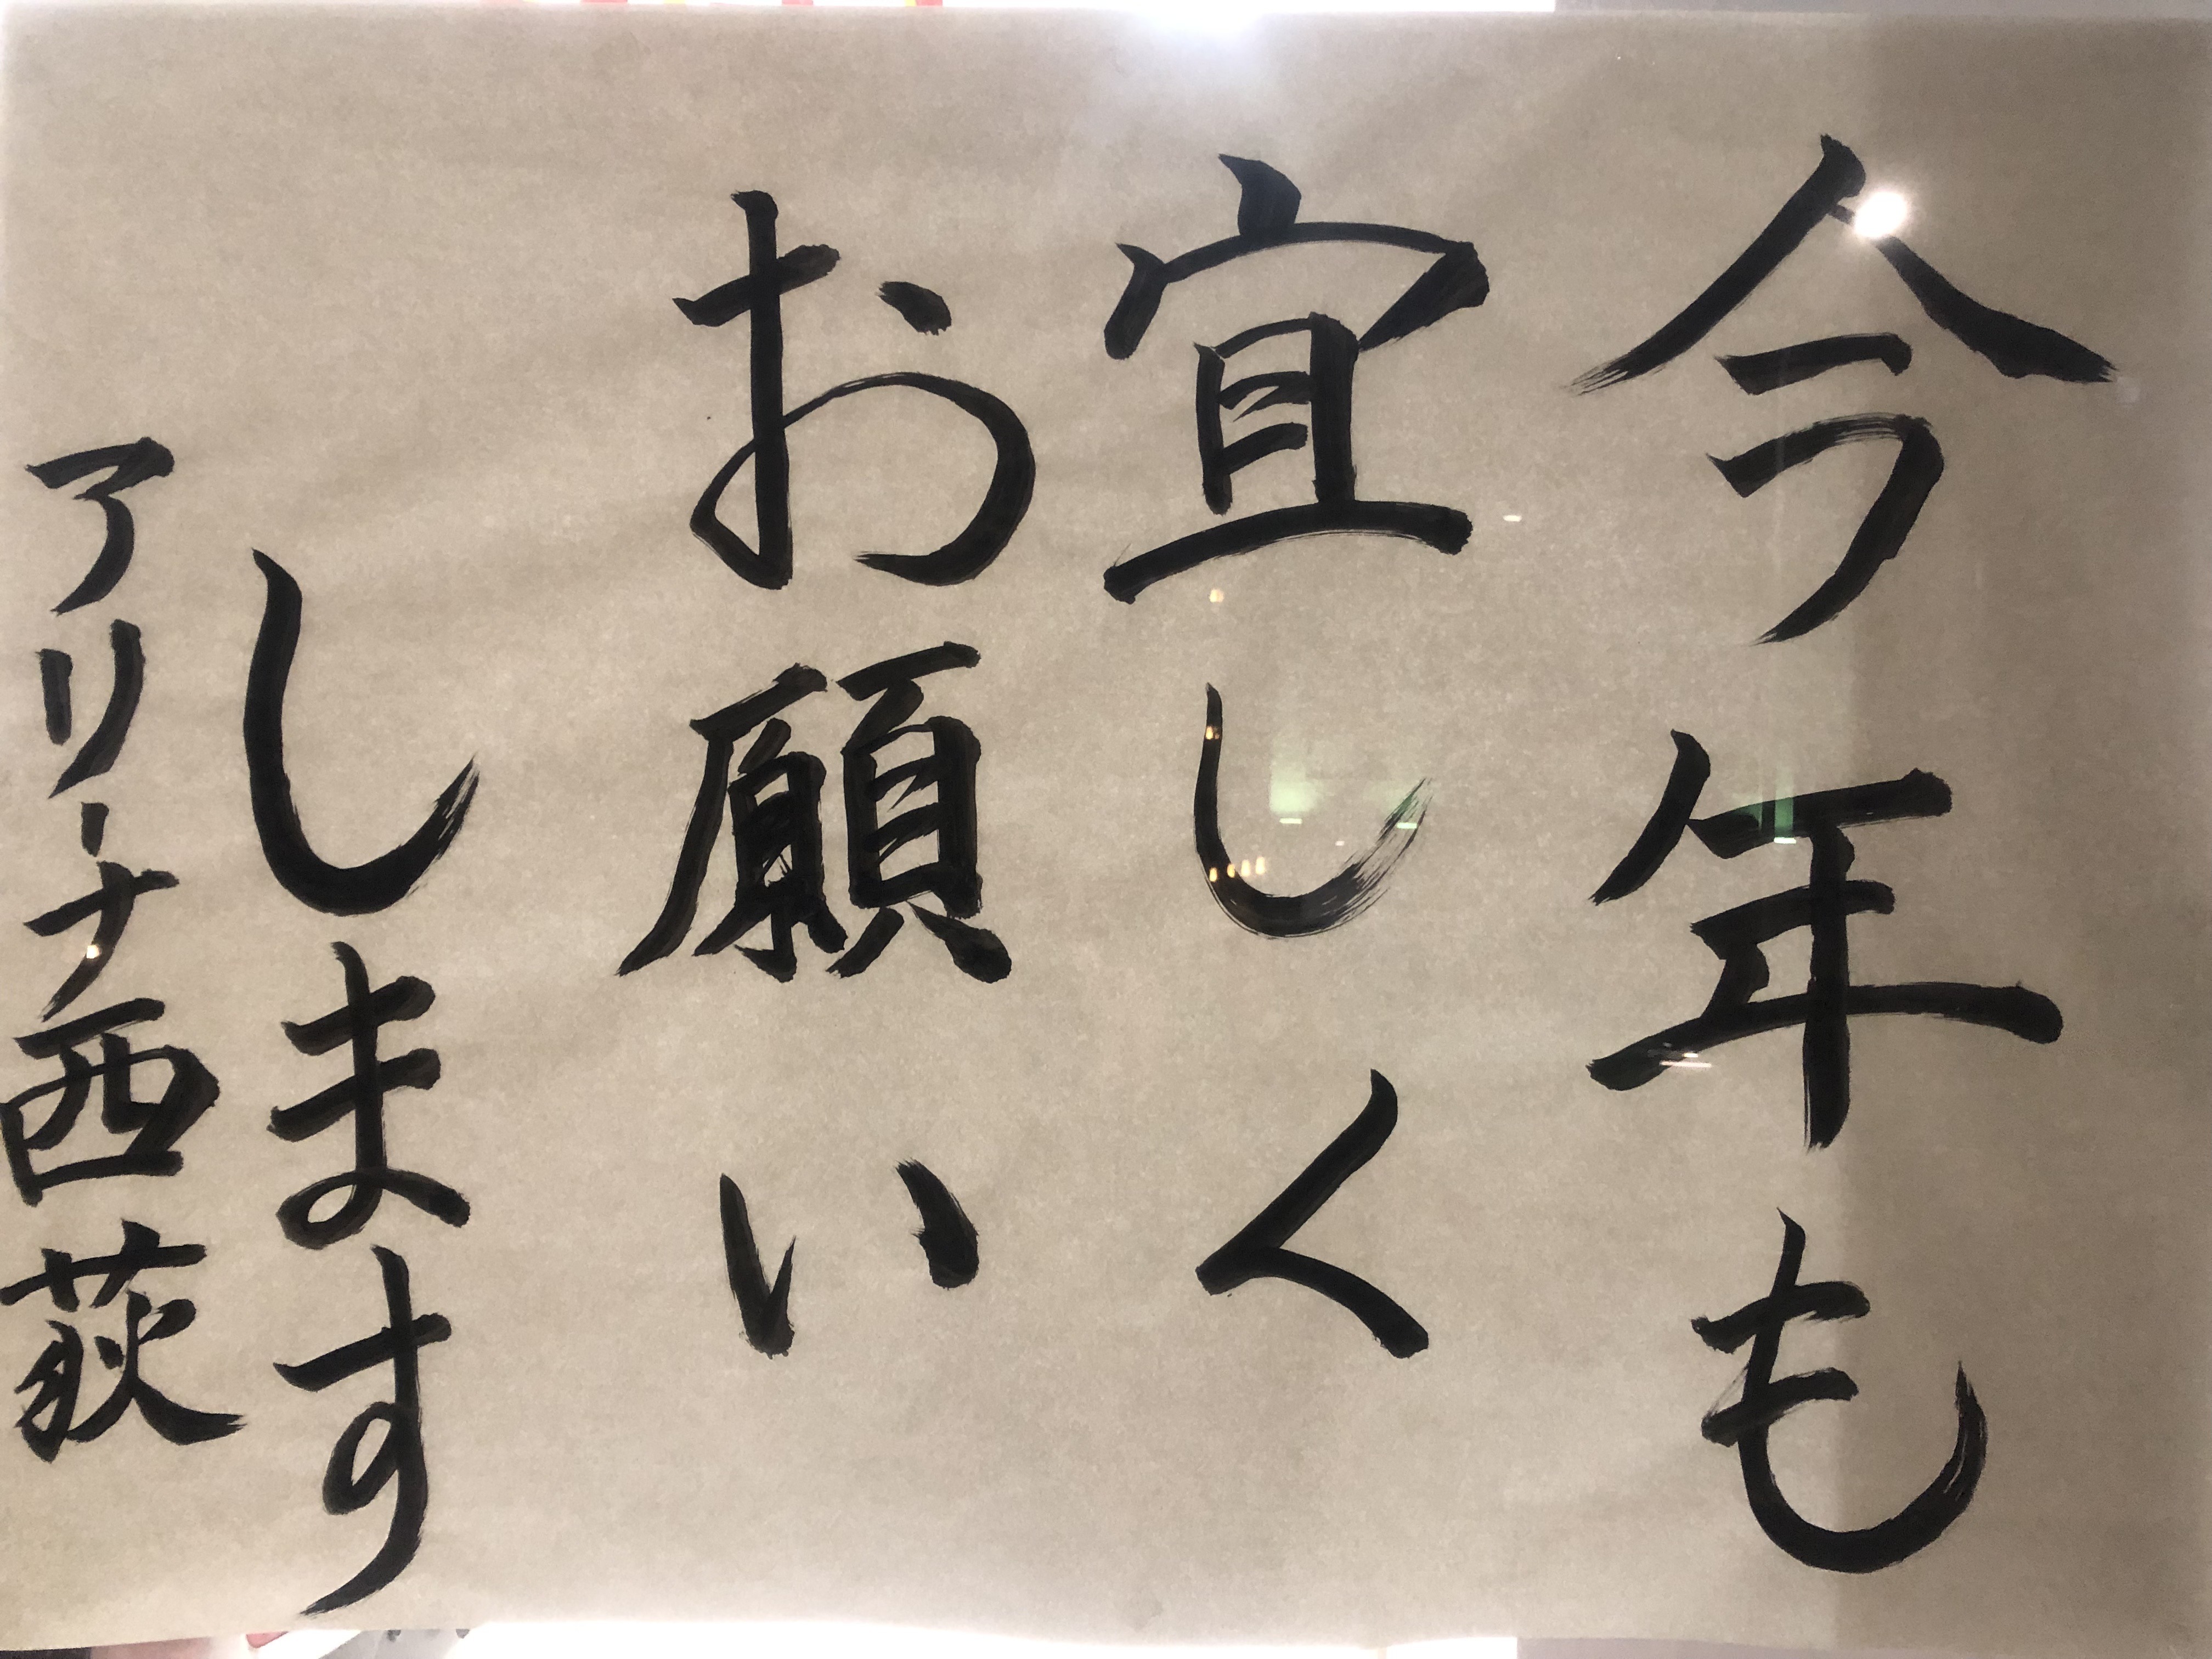 今年も
宜しく
お願い
します
アリーナ西荻